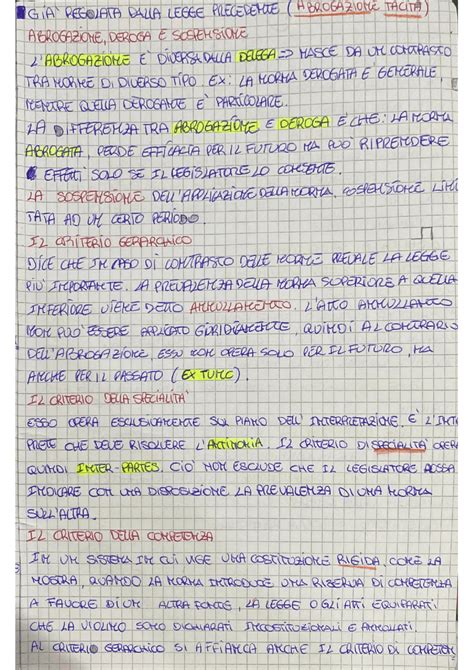 GIÀ REGOLATA DALLA LEGGE PRECEDENTE (ABROGAZIONE TACITA)
ABROGAZIONE, DEROGA E SOSPENSIONE
L'ABROGAZIONE È DIVERSA DALLA DELEGA => NASCE DA UN CONTRASTO
TRA NORME DI DIVERSO TIPO. EX: LA NORMA DEROGATA È GENERALE,
MENTRE QUELLA DEROGANTE È PARTICOLARE.
LA DIFFERENZA TRA ABROGAZIONE E DEROGA È CHE: LA NORMA
ABROGATA, PERDE EFFICACIA PER IL FUTURO MA PUÒ RIPRENDERE
EFFETTI SOLO SE IL LEGISLATORE LO CONSENTE.
LA SOSPENSIONE DELL'APPLICAZIONE DELLA NORMA, SOSPENSIONE LIMI
TATA AD UN CERTO PERIODO.
IL CRITERIO GERARCHICO
DICE CHE IN CASO DI CONTRASTO DELLE NORME PREVALE LA LEGGE
PIÙ IMPORTANTE. LA PREVALENZA DELLA NORMA SUPERIORE A QUELLA
INFERIORE VIENE DETTO ANNULLAMENTO. L'ATTO ANNULLATO
NON PUÒ ESSERE APPLICATO GIURIDICAMENTE, QUINDI AL CONTRARIO
DELL'ABROGAZIONE, ESSO NON OPERA SOLO PER IL FUTURO, MA
ANCHE PER IL PASSATO (EX TUNC).
IL CRITERIO DELLA SPECIALITÀ
ESSO OPERA ESCLUSIVAMENTE SUL PIANO DELL'INTERPRETAZIONE, È L'INTER
PRETE CHE DEVE RISOLVERE L'ANTINOMIA. IL CRITERIO DI SPECIALITÀ OPERA
QUINDI INTER-PARTES. CIÒ NON ESCLUDE CHE IL LEGISLATORE POSSA
INDICARE CON UNA DISPOSIZIONE LA PREVALENZA DI UNA NORMA
SULL'ALTRA.
IL CRITERIO DELLA COMPETENZA
IN UN SISTEMA IN CUI VIGE UNA COSTITUZIONE RIGIDA, COME LA
NOSTRA, QUANDO LA NORMA INTRODUCE UNA RISERVA DI COMPETENZA
A FAVORE DI UN ALTRA FONTE, LA LEGGE O GLI ATTI EQUIPARATI
CHE LA VIOLINO SONO DICHIARATI INCOSTITUZIONALI E ANNULLATI.
AL CRITERIO GERARCHICO SI AFFIANCA ANCHE IL CRITERIO DI COMPETEN